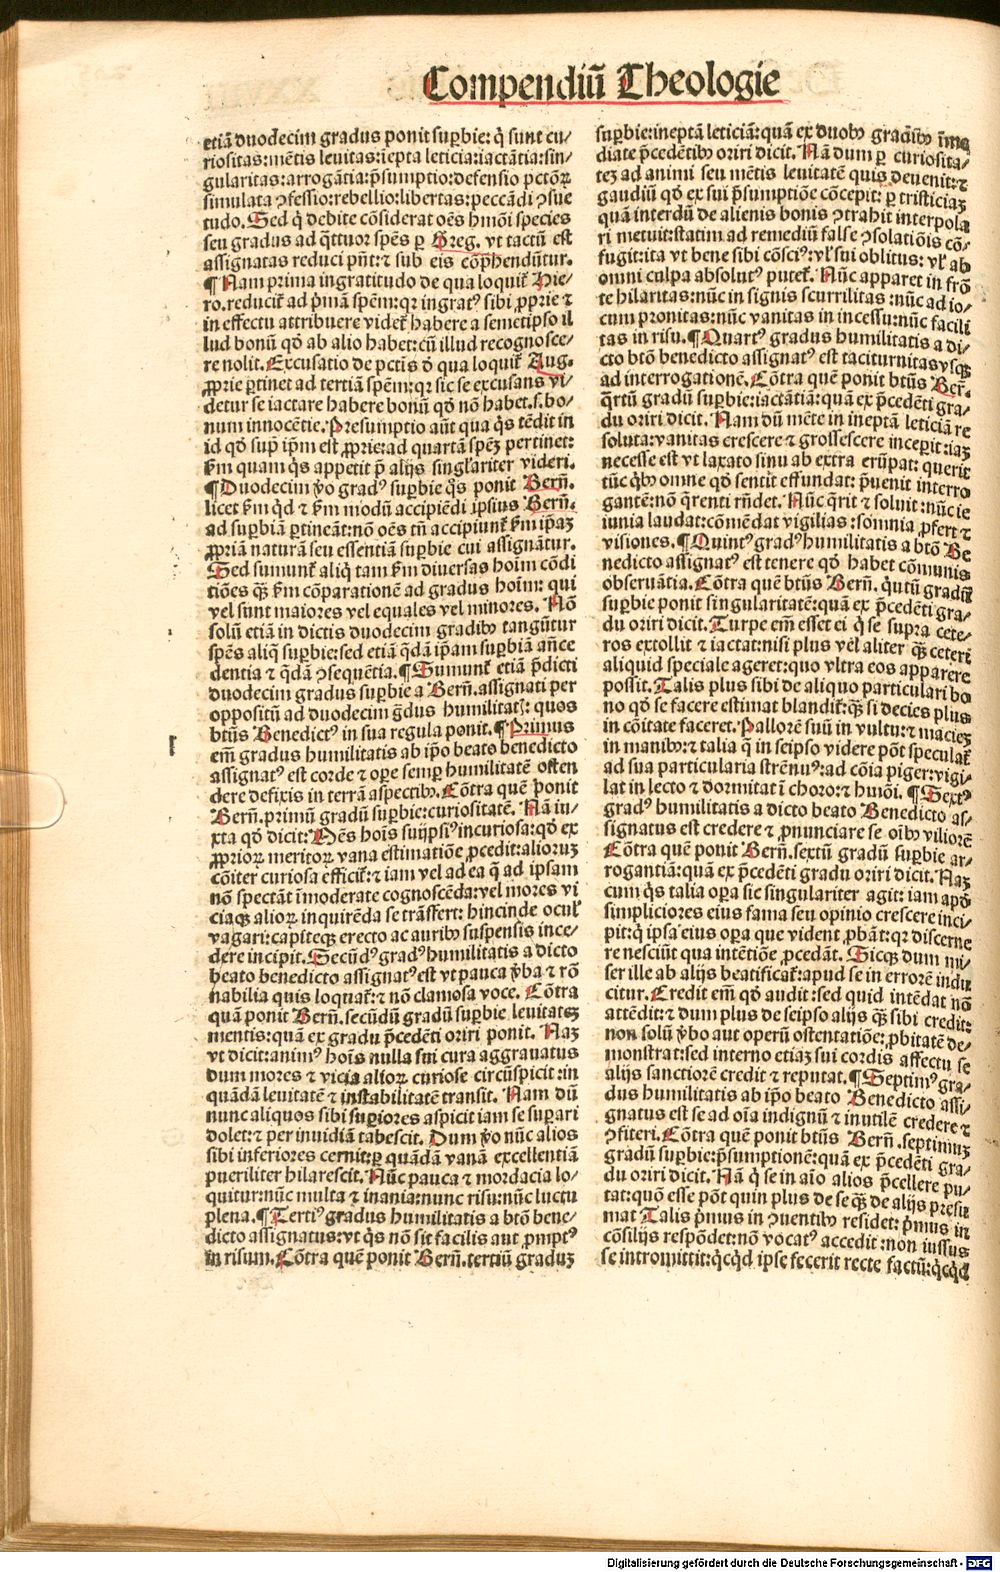 Compendiū Theologie
etiā duodecim gradus ponit suꝑbie: q̇ sunt cu⸗
riositas: mētis leuitas: iepta leticia: iactātia: sin⸗
gularitas: arrogātia: p̄sumptio: defensio pctōꝝ
simulata ꝯfessio: rebellio: libertas: peccādi ꝯsue
tudo. Sed q̇ debite cōsiderat oēs hmōi species
seu gradus ad q̄ttuor spēs ꝑ Greg. vt tactū est
assignatas reduci pn̄t: ⁊ sub eis cōp̄hendūtur.
¶ Nam prima ingratitudo de qua loquit᷑ Hie⸗
ro. reducit᷑ ad p̄mā spēm: qꝛ ingratꝰ sibi ꝓprie ⁊
in effectu attribuere videt᷑ habere a semetipso il
lud bonū qđ ab alio habet: cū illud recognosce⸗
re nolit. Excusatio de pctis đ qua loquit᷑ Aug.
ꝓprie ꝑtinet ad tertiā spēm: qꝛ sic se excusans vi⸗
detur se iactare habere bonū qđ nō habet. s. bo⸗
num innocētie. Presumptio aūt qua q̇s tēdit in
id qđ supͥ ip̄m est ꝓprie: ad quartā spēꝫ pertinet:
ẜm quam q̇s appetit p̄ alijs singl̓ariter videri.
¶ Duodecim ṽo gradꝰ suꝑbie q̇s ponit Bern̄.
licet ẜm qđ ⁊ ẜm modū accipiēdi ip̄sius Bern̄.
ad suꝑbiā ꝑtineāt: nō oēs tn̄ accipiunt᷑ ẜm ip̄aꝫ
ꝓpriā naturā seu essentiā suꝑbie cui assignātur.
Sed sumunt᷑ aliq̇ tam ẜm diuersas hoīm cōdi
tiōes q̄ꝫ ẜm cōparationē ad gradus hoīm: qui
vel sunt maiores vel equales vel minores. Nō
solū etiā in dictis duodecim gradibꝰ tangūtur
spēs aliq̇ suꝑbie: sed etiā q̄dā ip̄am suꝑbiā an̄ce
dentia ⁊ q̄dā ꝯsequētia. ¶ Sumunt᷑ etiā p̄dicti
duodecim gradus suꝑbie a Bern̄. assignati per
oppositū ad duodecim g̃dus humilitatꝭ: quos
btūs Benedictꝰ in sua regula ponit. ¶ Primus
em̄ gradus humilitatis ab ip̄o beato benedicto
assignatꝰ est corde ⁊ oꝑe semꝑ humilitatē osten
dere defixis in terrā aspectibꝰ. Cōtra quē ponit
Bern̄. primū gradū suꝑbie: curiositatē. Nā iu⸗
xta qđ dicit: Mēs hoīs suijpsiꝰ incuriosa: qđ ex
ꝓprioꝝ meritoꝝ vana estimatiōe ꝓcedit: alioruꝫ
cōiter curiosa efficit᷑: ⁊ iam vel ad ea q̄ ad ipsam
nō spectāt īmoderate cognoscēda: vel mores vi
ciaqꝫ alioꝝ inquirēda se trāsfert: hincinde ocul̓
vagari: capiteqꝫ erecto ac auribꝰ suspensis ince⸗
dere incipit. Secūdꝰ gradꝰ humilitatis a dicto
beato benedicto assignatꝰ est vt pauca ṽba ⁊ rō
nabilia quis loquat᷑: ⁊ nō clamosa voce. Cōtra
quā ponit Bern̄. secūdū gradū suꝑbie leuitateꝫ
mentis: quā ex gradu p̄cedēti oriri ponit. Naꝫ
vt dicit: animꝰ hoīs nulla sui cura aggrauatus
dum mores ⁊ vicia alioꝝ curiose circūspicit: in
quādā leuitatē ⁊ instabilitatē transit. Nam dū
nunc aliquos sibi suꝑiores aspicit iam se suꝑari
dolet: ⁊ per inuidiā tabescit. Dum ṽo nūc alios
sibi inferiores cernit: ꝑ quādā vanā excellentiā
pueriliter hilarescit. Nūc pauca ⁊ mordacia lo⸗
quitur: nūc multa ⁊ inania: nunc risu: nūc luctu
plena. ¶ Tertiꝰ gradus humilitatis a btō bene⸗
dicto assignatus: vt q̇s nō sit facilis aut ꝓmptꝰ
in risum. Cōtra quē ponit Bern̄. tertiū graduꝫ
suꝑbie: ineptā leticiā: quā ex duobꝰ gradibꝰ īme
diate p̄cedētibꝰ oriri dicit. Nā dum ꝑ curiosita⸗
teꝫ ad animi seu mētis leuitatē quis deuenit: ⁊
gaudiū qđ ex sui p̄sumptiōe cōcepit: ꝑ tristiciaꝫ
quā interdū de alienis bonis ꝯtrahit interpola
ri metuit: statim ad remediū false ꝯsolatiōis cō⸗
fugit: ita vt bene sibi cōsciꝰ: vl̓ sui oblitus: vl̓ ab
omni culpa absolutꝰ putet᷑. Nūc apparet in frō
te hilaritas: nūc in signis scurrilitas: nūc ad io⸗
cum pronitas: nūc vanitas in incessu: nūc facili
tas in risu. ¶ Quartꝰ gradus humilitatis a di⸗
cto btō benedicto assignatꝰ est taciturnitas vsqꝫ
ad interrogationē. Cōtra quē ponit btūs Ber̄.
q̄rtū gradū suꝑbie: iactātiā: quā ex p̄cedēti gra⸗
du oriri dicit. Nam dū mēte in ineptā leticiā re
soluta: vanitas crescere ⁊ grossescere incepit: iaꝫ
necesse est vt laxato sinu ab extra erūpat: querit
tūc q̇bꝰ omne qđ sentit effundat: p̄uenit interro
gantē: nō q̄renti rn̄det. Nūc q̄rit ⁊ soluit: nūc ie
iunia laudat: cōmēdat vigilias: somnia ꝓfert ⁊
visiones. ¶ Quintꝰ gradꝰ humilitatis a btō Be
nedicto assignatꝰ est tenere qđ habet cōmunis
obseruātia. Cōtra quē btūs Bern̄. q̇utū gradū
suꝑbie ponit singularitatē: quā ex p̄cedēti gra⸗
du oriri dicit. Turpe em̄ esset ei q̇ se supra cete⸗
ros extollit ⁊ iactat: nisi plus vel aliter q̄ꝫ ceteri
aliquid speciale ageret: quo vltra eos apparere
possit. Talis plus sibi de aliquo particulari bo
no qđ se facere estimat blandit᷑: q̄ꝫ si decies plus
in cōitate faceret. Pallorē suū in vultu: ⁊ macieꝫ
in manibꝰ: ⁊ talia q̄ in seipso videre pōt speculat᷑
ad sua particularia strēnuꝰ: ad cōia piger: vigi⸗
lat in lecto ⁊ dormitat ī choro: ⁊ hmōi. ¶ Sextꝰ
gradꝰ humilitatis a dicto beato Benedicto as⸗
signatus est credere ⁊ ꝓnunciare se oībꝰ viliorē
Cōtra quē ponit Bern̄. sextū gradū suꝑbie ar⸗
rogantiā: quā ex p̄cedēti gradu oriri dicit. Naꝫ
cum q̇s talia oꝑa sic singulariter agit: iam apđ
simpliciores eius fama seu opinio crescere inci⸗
pit: q̇ ipsa eius oꝑa que vident ꝓbāt: qꝛ discerne
re nesciūt qua intētiōe ꝓcedāt. Sicqꝫ dum mi⸗
ser ille ab alijs beatificat᷑: apud se in errorē indu
citur. Credit em̄ qđ audit: sed quid intēdat nō
attēdit: ⁊ dum plus de seipso alijs q̄ꝫ sibi credit:
non solū ṽbo aut operū ostentatiōe: ꝓbitatē de⸗
monstrat: sed interno etiaꝫ sui cordis affectu se
alijs sanctiorē credit ⁊ reputat. ¶ Septimꝰ gra⸗
dus humilitatis ab ip̄o beato Benedicto assi⸗
gnatus est se ad oīa indignū ⁊ inutilē credere ⁊
ꝯfiteri. Cōtra quē ponit btūs Bern̄. septimuꝫ
gradū suꝑbie: p̄sumptionē: quā ex p̄cedēti gra⸗
du oriri dicit. Nā q̇ se in aīo alios p̄cellere pu⸗
tat: quō esse pōt quin plus de se q̄ꝫ de alijs presu
mat Talis p̄mus in ꝯuentibꝰ residet: p̄mus in
cōsilijs respōdet: nō vocatꝰ accedit: non iussus
se intromittit: q̇cq̇d ipse fecerit recte factū: q̇cq̇d
Digitalisierung gefördert durch die Deutsche Forschungsgemeinschaft - DFG